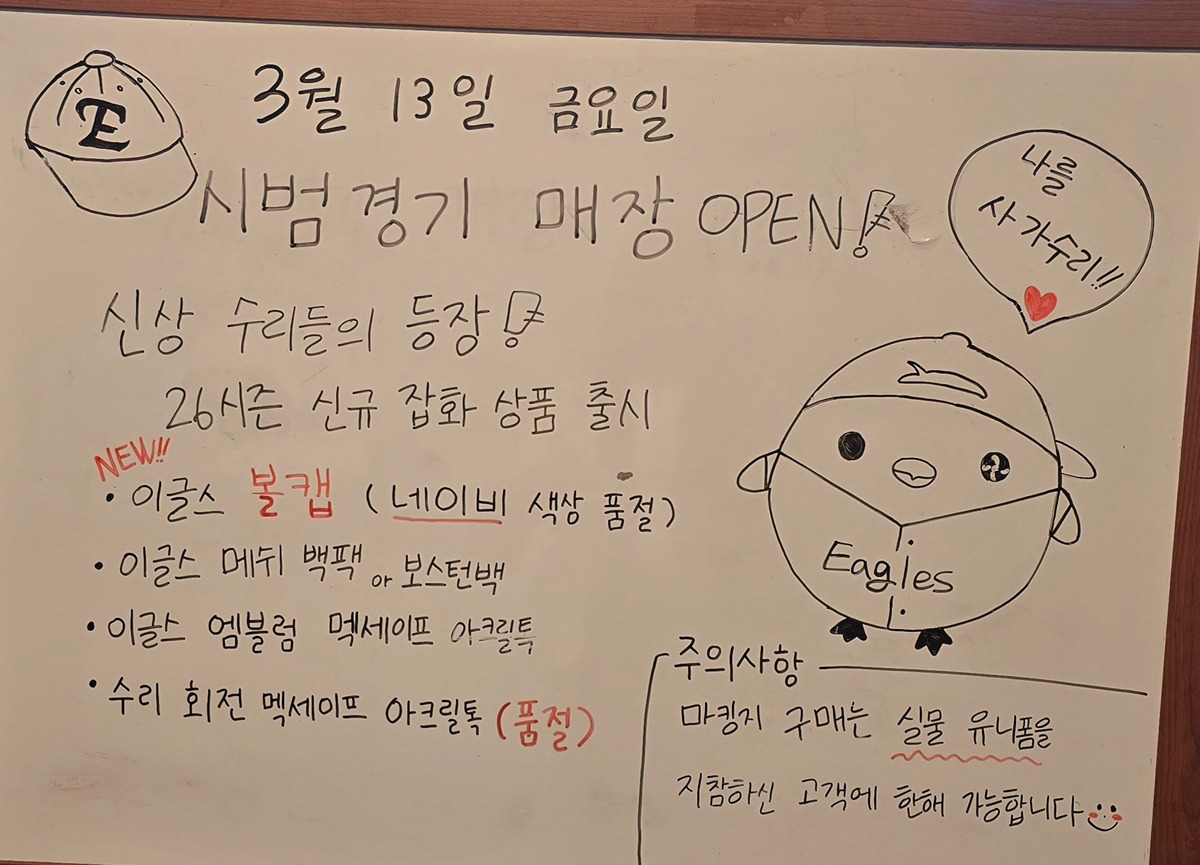 E
3월 13일 금요일
시범경기 매장 OPEN!
나를
사가수리!!
신상 수리들의 등장!
26시즌 신규 잡화 상품 출시
NEW!!
· 이글스 볼캡 (네이비 색상 품절)
· 이글스 메쉬 백팩 or 보스턴백
· 이글스 엠블럼 멕세이프 아크릴톡
· 수리 회전 멕세이프 아크릴톡 (품절)
Eagles
주의사항
마킹지 구매는 실물 유니폼을
지참하신 고객에 한해 가능합니다